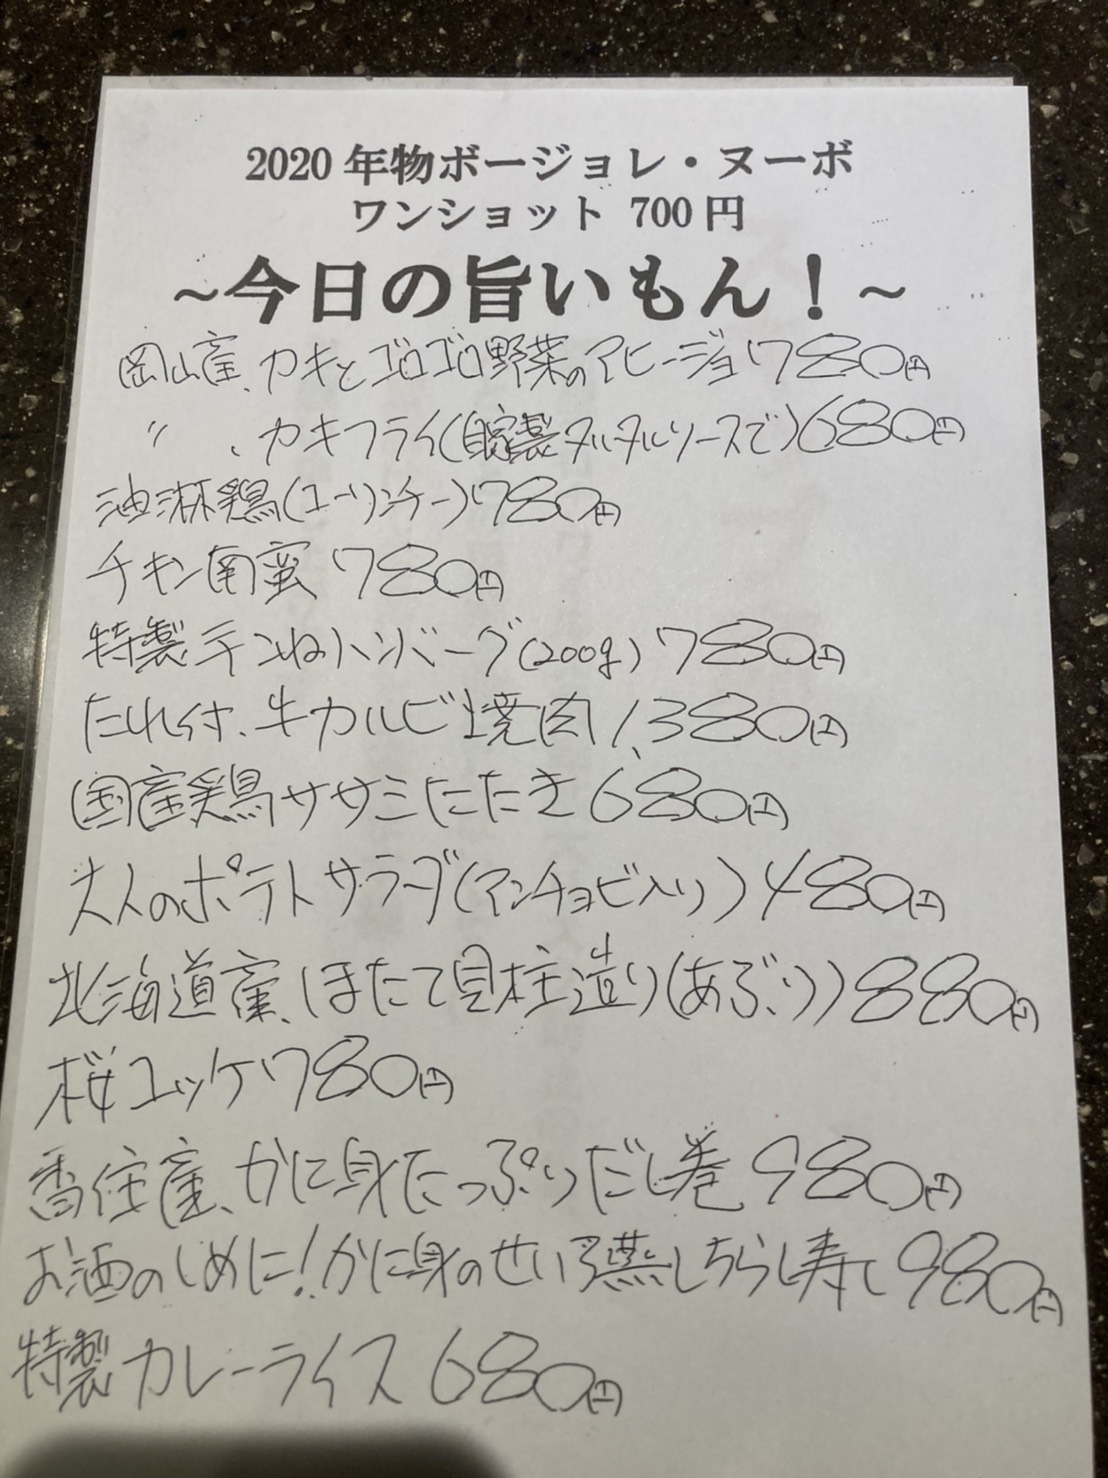 2020 年物ボージョレ・ヌーボ
ワンショット 700 円
~今日の旨いもん！~
岡山産、カキとゴロゴロ野菜のアヒージョ780円
〃、カキフライ(自家製タルタルソースで)680円
油淋鶏(ユーリンチー)780円
チキン南蛮 780円
特製手ごねハンバーグ(200g)780円
たれ付、牛カルビ焼肉1,380円
国産鶏ササミたたき680円
大人のポテトサラダ(アンチョビ入り)480円
北海道産、ほたて貝柱造り(あぶり)880円
桜ユッケ780円
香住産、かに身たっぷりだし巻 980円
お酒のしめに！かに身のせいろ蒸しちらし寿し980円
特製カレーライス 680円